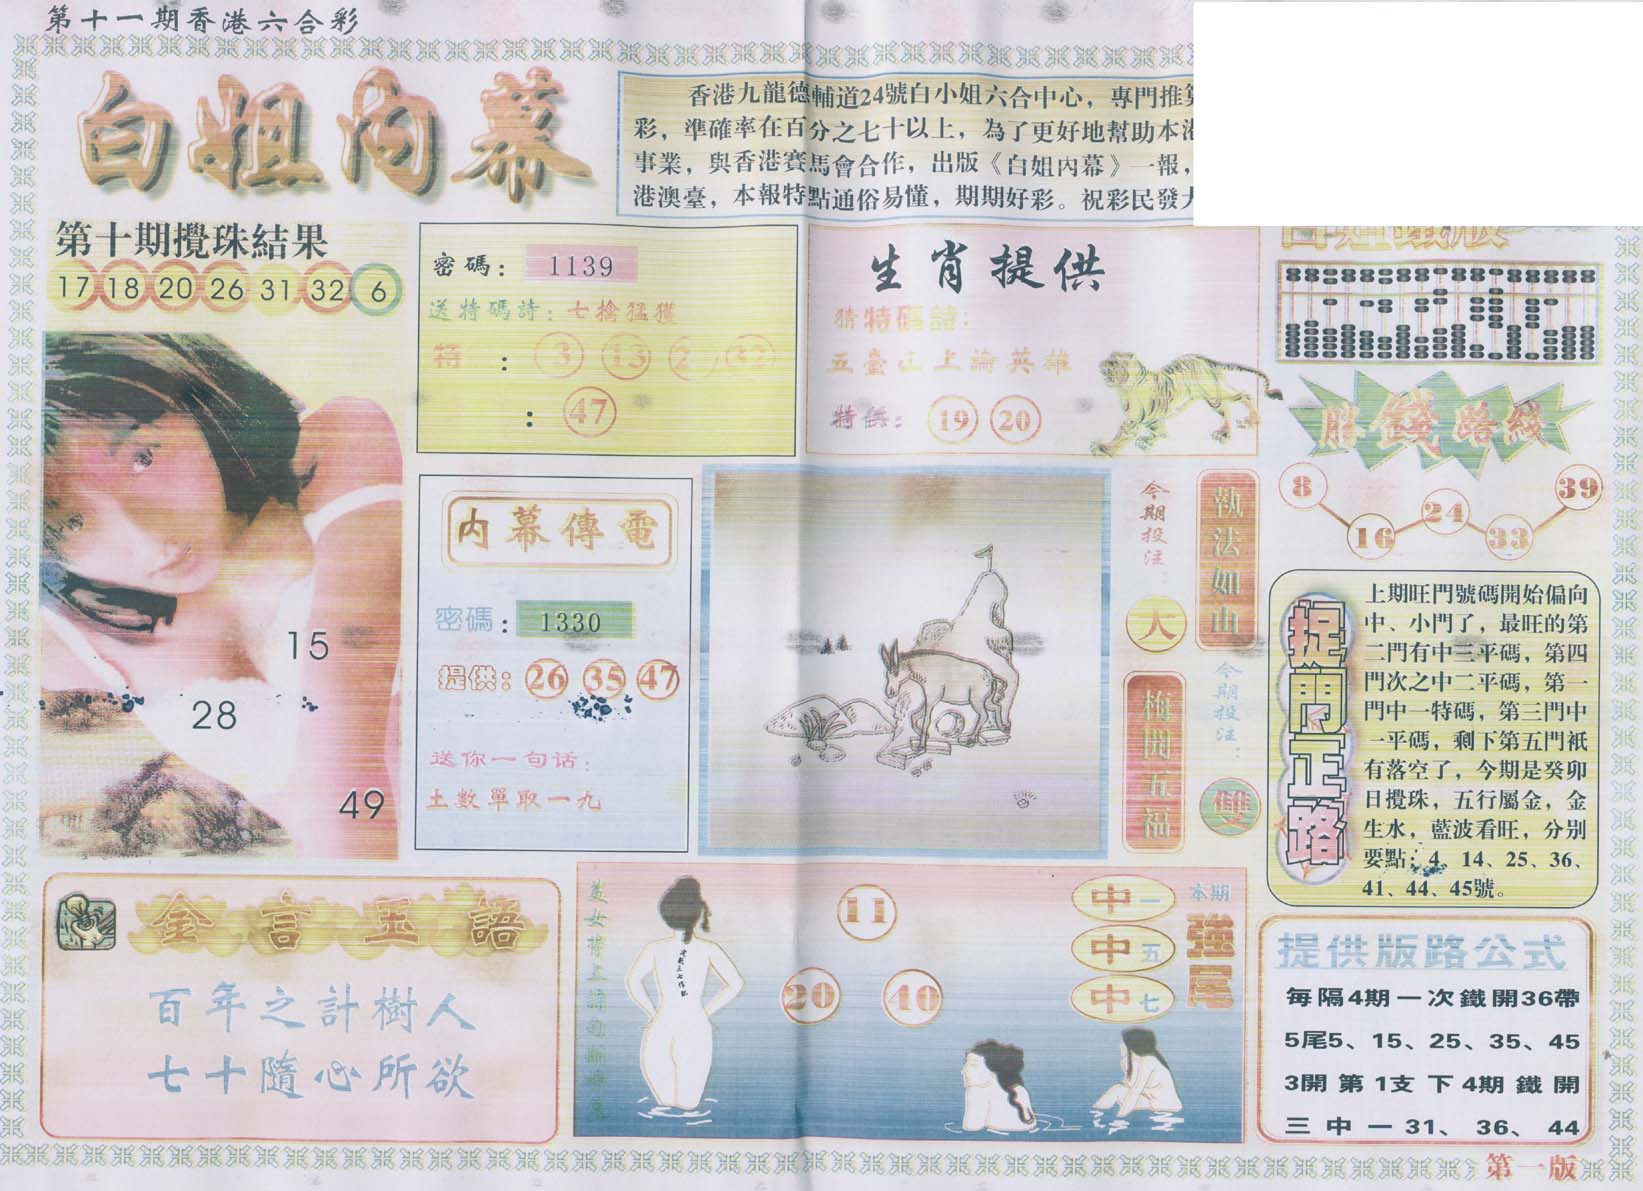 第十一期香港六合彩
白姐内幕
香港九龍德輔道24號白小姐六合中心，專門推算
彩，準確率在百分之七十以上，為了更好地幫助本港
事業，與香港賽馬會合作，出版《白姐內幕》一報，
港澳臺，本報特點通俗易懂，期期好彩。祝彩民發大
第十期攪珠結果
17 18 20 26 31 32 6
15
28
49
密碼： 1139
送特碼詩：七擒猛獲
特 ： 3 13 2 32
： 47
生肖提供
猜特碼詩：
五臺山上論英雄
特供： 19 20
胜錢路綫
8 16 24 33 39
内幕傳電
密碼： 1330
提供： 26 35 47
送你一句话：
土數單取一九
今期投注：
大
執法如山
梅開五福
今期投注：
雙
捉門正路
上期旺門號碼開始偏向
中、小門了，最旺的第
二門有中三平碼，第四
門次之中二平碼，第一
門中一特碼，第三門中
一平碼，剩下第五門衹
有落空了，今期是癸卯
日攪珠，五行屬金，金
生水，藍波看旺，分别
要點：4、14、25、36、
41、44、45號。
金言玉語
百年之計樹人
七十隨心所欲
11
20 40
中一
中五
中七
本期
強尾
提供版路公式
每隔4期一次鐵開36帶
5尾5、15、25、35、45
3開第1支下4期鐵開
三中一31、36、44
第一版